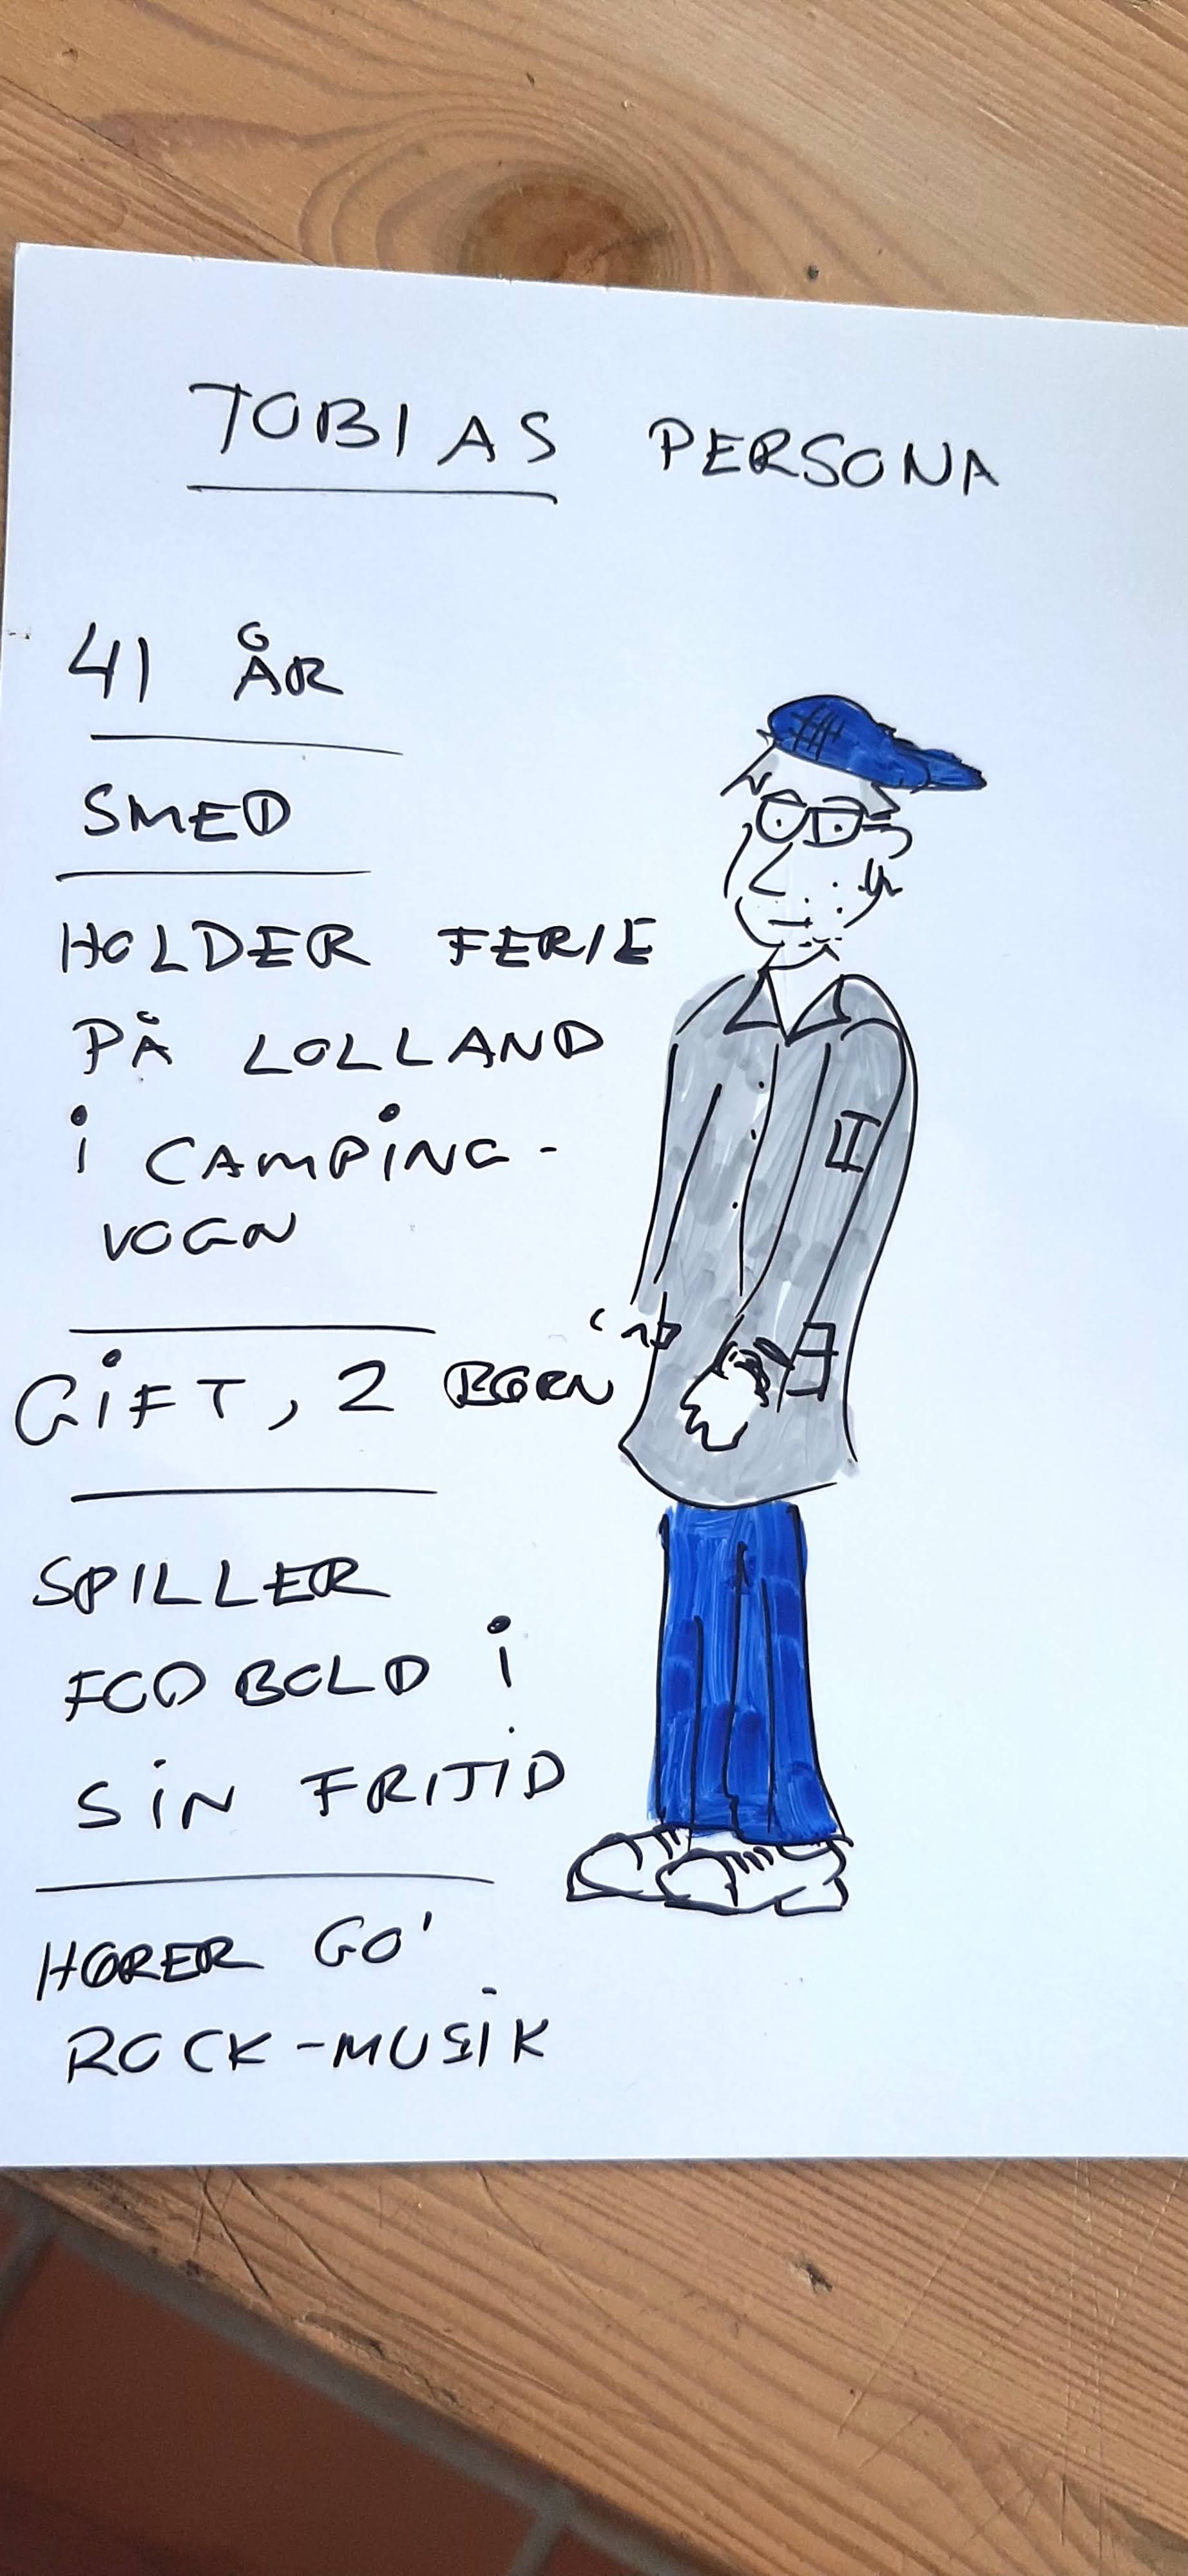 TOBIAS PERSONA
41 ÅR
SMED
HOLDER FERIE
PÅ LOLLAND
i CAMPiNG-
VOGN
GiFT, 2 BØRN
SPILLER
FODBOLD i
SiN FRITID
HØRER GO'
ROCK-MUSiK